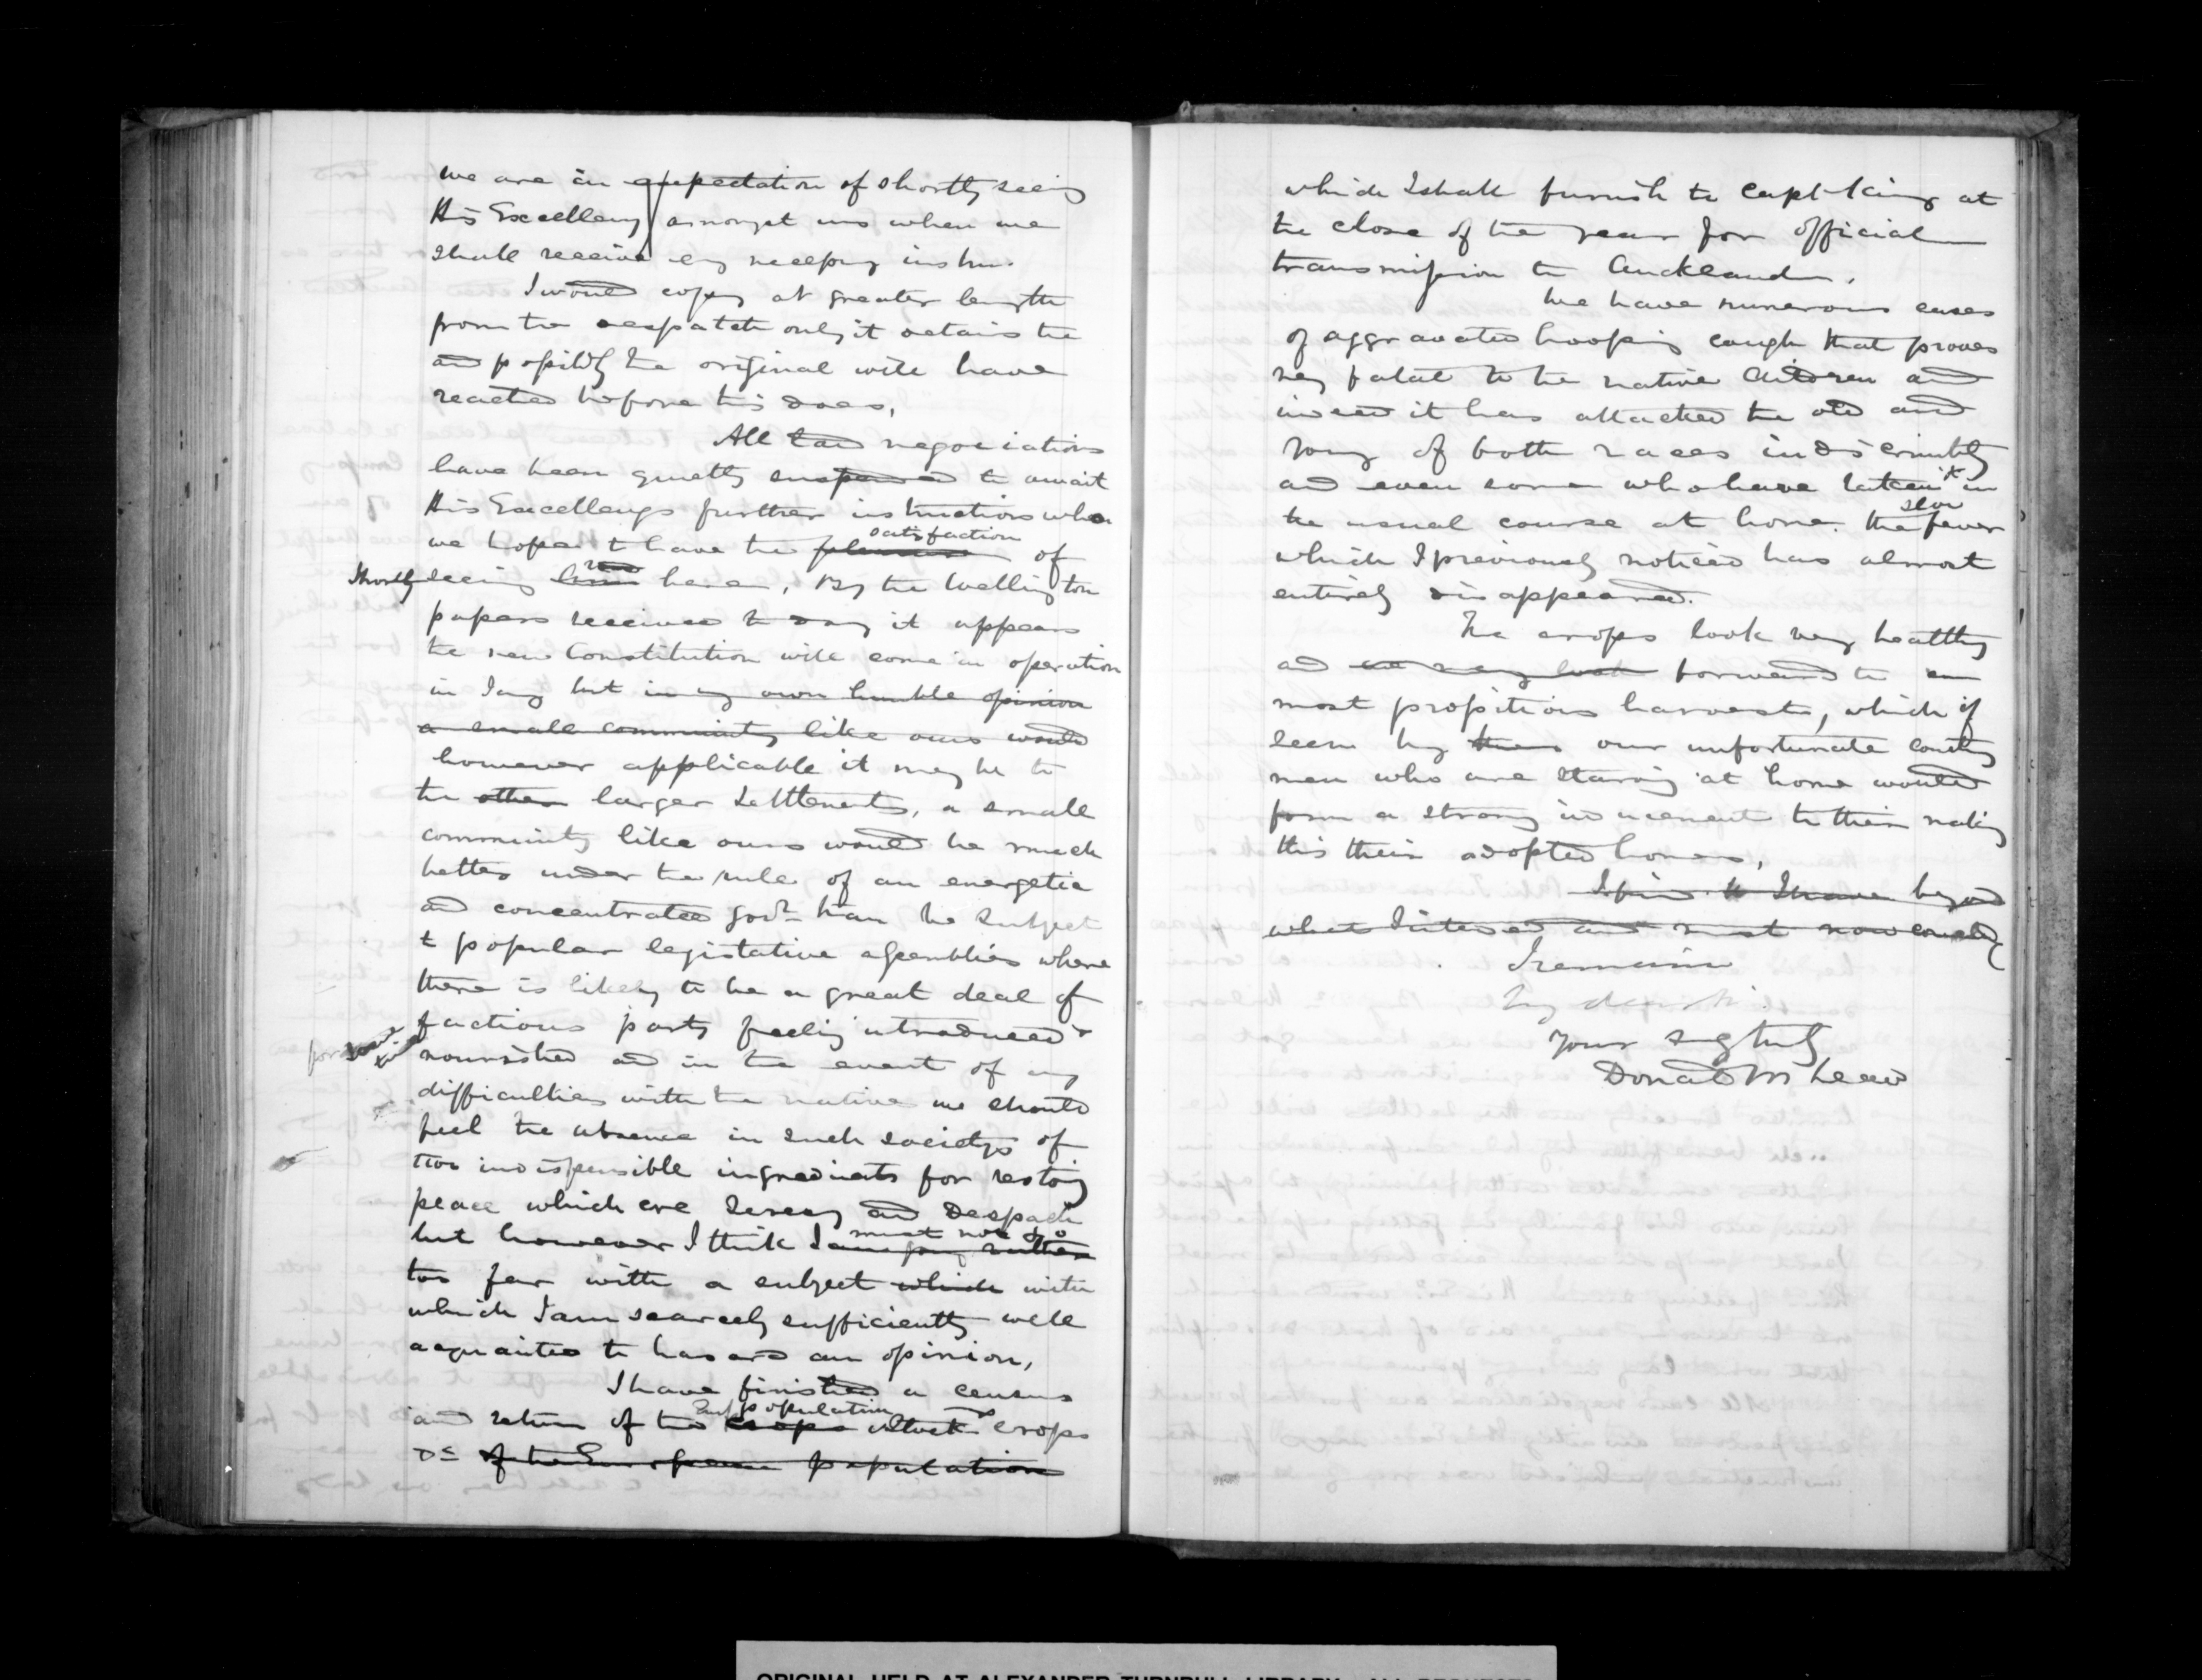 we are in expectation of shortly seeing
His Excellency amongst us when we
shall receive any necessy instrns.
I would copy at greater length
from the despatch only it detains the
and possibly the original will have
reached before this does,
All land negociations
have been quietly suspended to await
His Excellencys further instructions when
satisfaction
we hope to have the pleasure of
Shortly seeing him here, By the Wellington
papers received to day it appears
the new Constitution will come in operation
in Jany but in my own humble opinion
a small community like ours would
however applicable it may be to
the other larger Settlements, a small
community like ours would be much
better under the rule of an energetic
and concentrated govt than be subject
to popular legistative assemblies where
there is likely to be a great deal of
factious party feeling introduced &
for some time
nourished and in the event of any
difficulties with the natives we should
feel the absence in such societys of
two indispensible ingredients for restoring
peace which are Secrecy and Despach
must not go
but however I think I am going rather
too far with a subject which with
which I am scarcely sufficiently well
acquainted to hasard an opinion,
I have finished a census
population
and return of the crops Stock & crops
&c of the European population
which I shall furnish to Capt King at
the close of the year for official
transmission to Auckland.
We have numerous cases
of aggravated hooping cough that proves
very fatal to the native children and
indeed it has attacked the old and
young of both races indiscrimtly
and even some who have taken it in
slow
the usual course at home. The fever
which I previously noticed has almost
entirely disappeared.
The crops look very healthy
and we may look forward to
most propitious harvest, which if
seen by them our unfortunate country
men who are starving at home would
form a strong inducement to their making
this their adopted homes,
I find I have beyond
what I intended and must now conclude
I remain
My dear Sir
Your
Donald McLean
ORIGINAL HELD AT ALEXANDER TURNBULL LIBRARY. ALL REQUESTS